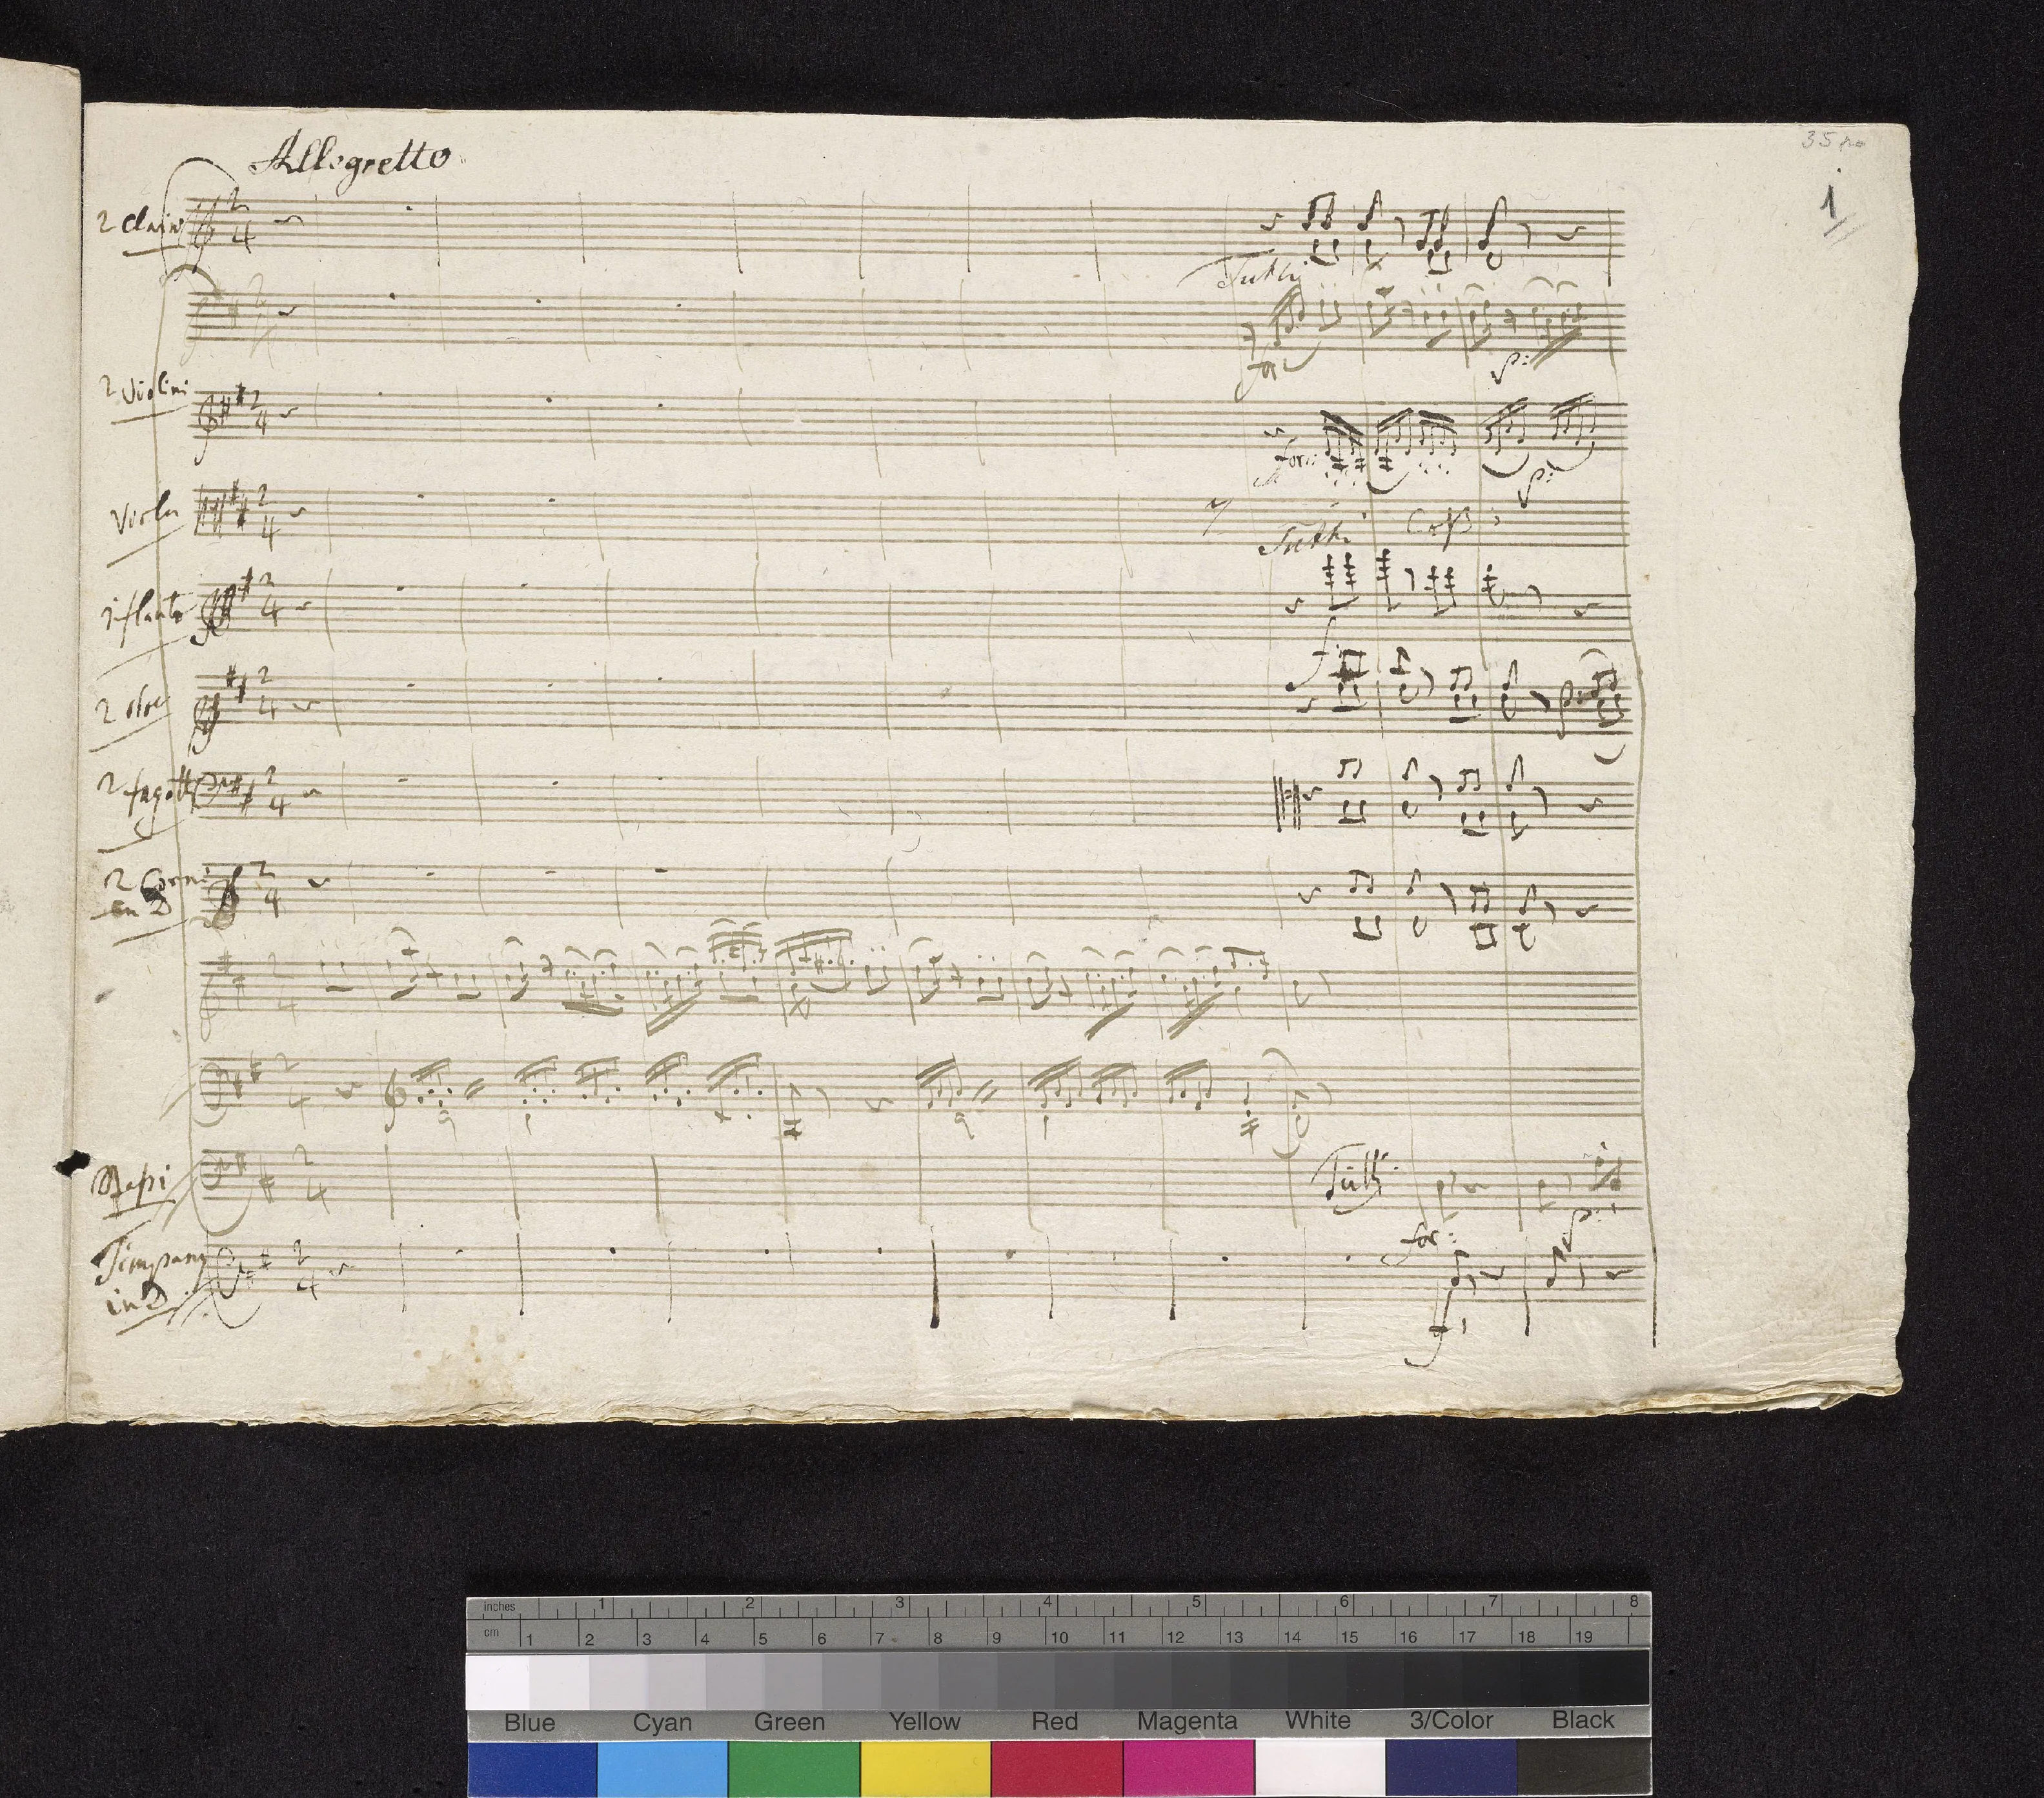 35
1
Allegretto
2 Clarini
Tutti
for:
p:
2 Violini
for:
p:
Viola
Tutti
1 flauto
f:
2 oboe
p:
2 fagotti
2 Corni
in D
Bassi
Tutti
for:
p:
Timpany
in D
f:
inches 1 2 3 4 5 6 7 8
cm 1 2 3 4 5 6 7 8 9 10 11 12 13 14 15 16 17 18 19
Blue Cyan Green Yellow Red Magenta White 3/Color Black